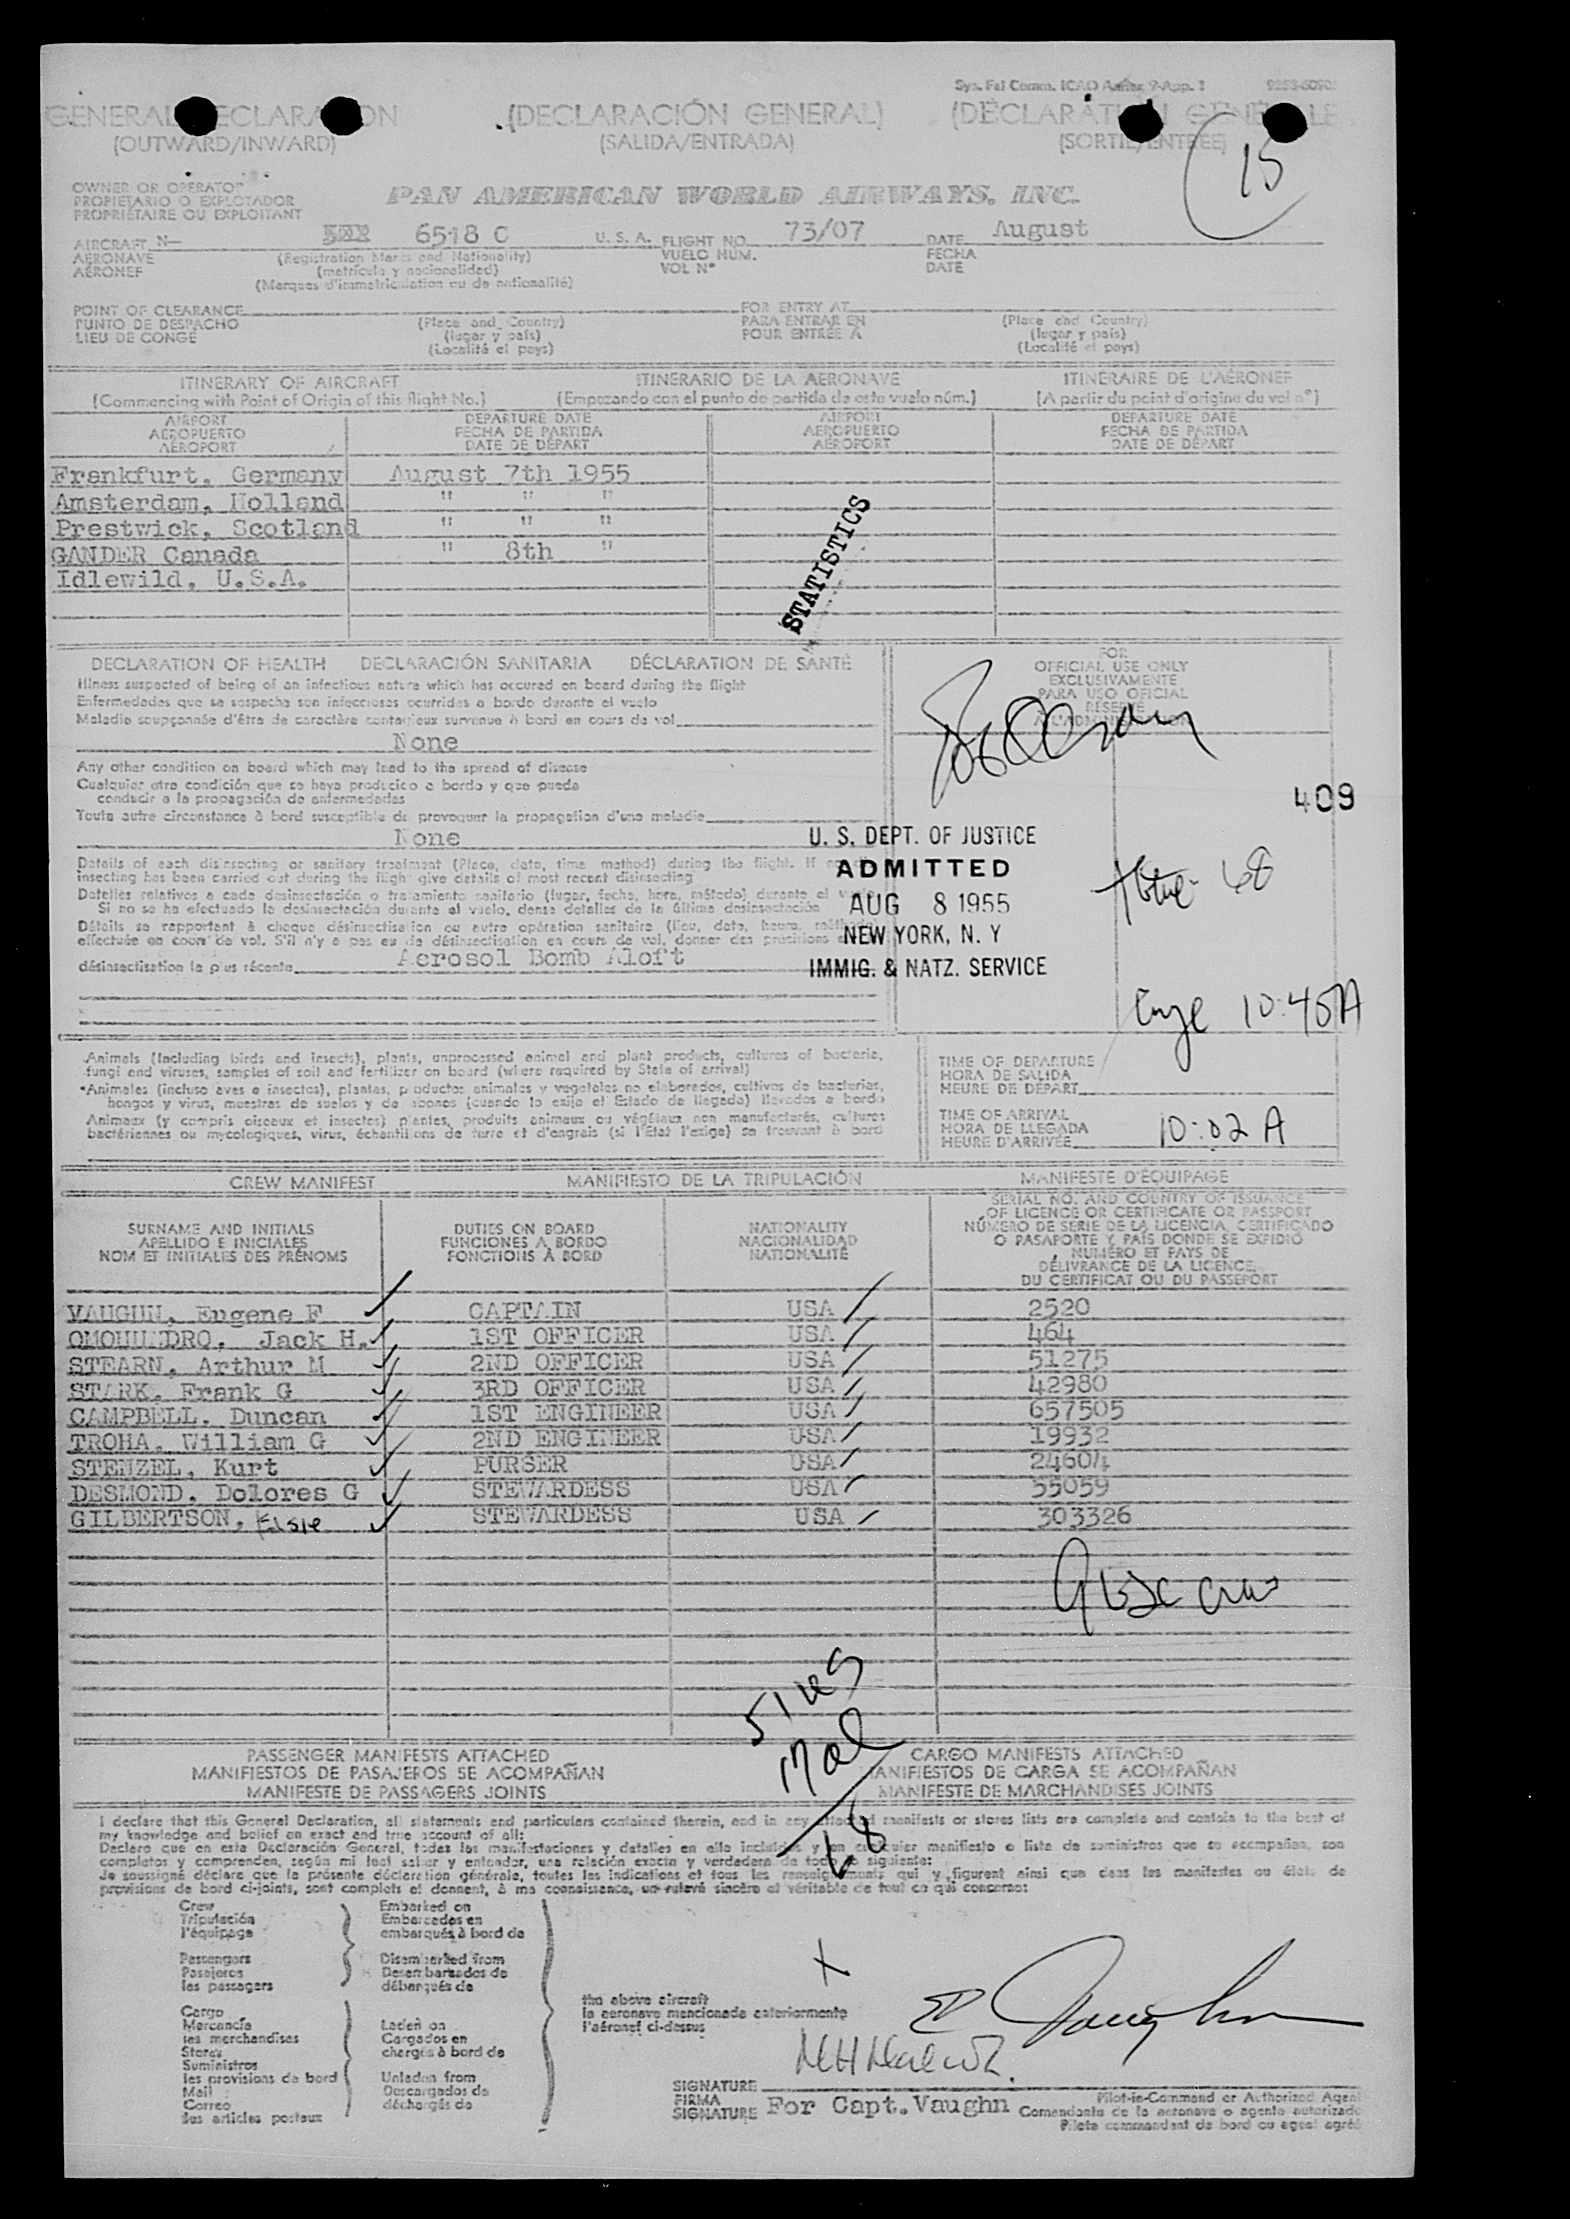 Sys. Fal Comm. ICAO Annex 9-App. 1
GENERAL DECLARATION (DECLARACIÓN GENERAL) (DÉCLARATION GÉNÉRALE
(OUTWARD/INWARD) (SALIDA/ENTRADA) (SORTIE/ENTRÉE)
15
OWNER OR OPERATOR
PROPIETARIO O EXPLOTADOR
PROPRIÉTAIRE OU EXPLOITANT
PAN AMERICAN WORLD AIRWAYS, INC.
AIRCRAFT N— 6518 C U. S. A. FLIGHT NO. 73/07 DATE August
AERONAVE (Registration Marks and Nationality) VUELO NUM. FECHA
AÉRONEF (matrícula y nacionalidad) VOL Nº DATE
(Marques d'immatriculation ou de nationalité)
POINT OF CLEARANCE FOR ENTRY AT
PUNTO DE DESPACHO (Place and Country) PARA ENTRAR EN (Place and Country)
LIEU DE CONGÉ (lugar y país) POUR ENTRÉE A (lugar y país)
(Localité et pays) (Localité et pays)
ITINERARY OF AIRCRAFT ITINERARIO DE LA AERONAVE ITINÉRAIRE DE L'AÉRONEF
(Commencing with Point of Origin of this flight No.) (Empezando con el punto de partida de este vuelo núm.) (A partir du point d'origine du vol nº)
AIRPORT DEPARTURE DATE AIRPORT DEPARTURE DATE
AEROPUERTO FECHA DE PARTIDA AEROPUERTO FECHA DE PARTIDA
AÉROPORT DATE DE DÉPART AÉROPORT DATE DE DÉPART
Frankfurt, Germany August 7th 1955
Amsterdam, Holland " " "
Prestwick, Scotland " " "
GANDER Canada " 8th "
Idlewild, U.S.A.
STATISTICS
DECLARATION OF HEALTH DECLARACIÓN SANITARIA DÉCLARATION DE SANTÉ
Illness suspected of being of an infectious nature which has occured on board during the flight
Enfermedades que se sospecha son infecciosas ocurridas a bordo durante el vuelo
Maladie soupçonnée d'être de caractère contagieux survenue à bord en cours de vol
None
Any other condition on board which may lead to the spread of disease
Cualquier otra condición que se haya producido a bordo y que pueda
conducir a la propagación de enfermedades
Toute autre circonstance à bord susceptible de provoquer la propagation d'une maladie
None
Details of each disinsecting or sanitary treatment (Place, date, time method) during the flight. If no
insecting has been carried out during the flight give details of most recent disinsecting
Detalles relativos a cada desinsectación o tratamiento sanitario (lugar, fecha, hora, método) durante el vuelo
Si no se ha efectuado la desinsectación durante el vuelo, dense detalles de la última desinsectación
Détails se rapportant à chaque désinsectisation ou autre opération sanitaire (lieu, date, heure, méthode)
effectuée en cours de vol. S'il n'y a pas eu de désinsectisation en cours de vol, donner des précisions
désinsectisation la plus récente Aerosol Bomb Aloft
FOR
OFFICIAL USE ONLY
EXCLUSIVAMENTE
PARA USO OFICIAL
RÉSERVÉ
À L'ADMINISTRATION
409
U. S. DEPT. OF JUSTICE
ADMITTED
AUG 8 1955
NEW YORK, N. Y
IMMIG. & NATZ. SERVICE
68
10:45A
Animals (Including birds and insects), plants, unprocessed animal and plant products, cultures of bacteria,
fungi and viruses, samples of soil and fertilizer on board (where required by State of arrival)
•Animales (incluso aves e insectos), plantas, productos animales y vegetales no elaborados, cultivos de bacterias,
hongos y virus, muestras de suelos y de abonos (cuando lo exija el Estado de llegada) llevados a bordo
Animaux (y compris oiseaux et insectes) plantes, produits animaux ou végétaux non manufacturés, cultures
bactériennes ou mycologiques, virus, échantillons de terre et d'engrais (si l'État l'exige) se trouvant à bord
TIME OF DEPARTURE
HORA DE SALIDA
HEURE DE DÉPART
TIME OF ARRIVAL
HORA DE LLEGADA
HEURE D'ARRIVÉE 10:02 A
CREW MANIFEST MANIFIESTO DE LA TRIPULACIÓN MANIFESTE D'ÉQUIPAGE
SURNAME AND INITIALS
APELLIDO E INICIALES
NOM ET INITIALES DES PRÉNOMS
DUTIES ON BOARD
FUNCIONES A BORDO
FONCTIONS À BORD
NATIONALITY
NACIONALIDAD
NATIONALITÉ
SERIAL NO. AND COUNTRY OF ISSUANCE
OF LICENCE OR CERTIFICATE OR PASSPORT
NÚMERO DE SERIE DE LA LICENCIA, CERTIFICADO
O PASAPORTE Y PAÍS DONDE SE EXPIDIÓ
NUMÉRO ET PAYS DE
DÉLIVRANCE DE LA LICENCE,
DU CERTIFICAT OU DU PASSEPORT
VAUGHN, Eugene F CAPTAIN USA 2520
OMOHUNDRO, Jack H. 1ST OFFICER USA 464
STEARN, Arthur M 2ND OFFICER USA 51275
STARK, Frank G 3RD OFFICER USA 42980
CAMPBELL, Duncan 1ST ENGINEER USA 657505
TROHA, William G 2ND ENGINEER USA 19932
STENZEL, Kurt PURSER USA 24604
DESMOND, Dolores G STEWARDESS USA 55059
GILBERTSON, Elsie STEWARDESS USA 303326
51 us
17 al
68
PASSENGER MANIFESTS ATTACHED CARGO MANIFESTS ATTACHED
MANIFIESTOS DE PASAJEROS SE ACOMPAÑAN MANIFIESTOS DE CARGA SE ACOMPAÑAN
MANIFESTE DE PASSAGERS JOINTS MANIFESTE DE MARCHANDISES JOINTS
I declare that this General Declaration, all statements and particulars contained therein, and in any attached manifests or stores lists are complete and contain to the best of
my knowledge and belief an exact and true account of all:
Declaro que en esta Declaración General, todas las manifestaciones y detalles en ella incluidos y en cualquier manifiesto o lista de suministros que se acompañan, son
completos y comprenden, según mi leal saber y entender, una relación exacta y verdadera de todo lo siguiente:
Je soussigné déclare que la présente déclaration générale, toutes les indications et tous les renseignements qui y figurent ainsi que dans les manifestes ou états de
provisions de bord ci-joints, sont complets et donnent, à ma connaissance, un relevé sincère et véritable de tout ce qui concerne:
Crew Embarked on
Tripulación Embarcados en
l'équipage embarqués à bord de
Passengers Disembarked from
Pasajeros Desembarcados de
les passagers débarqués de
the above aircraft
la aeronave mencionada anteriormente
l'aéronef ci-dessus
Cargo
Mercancía Laden on
les marchandises Cargados en
Stores chargés à bord de
Suministros
les provisions de bord Unladen from
Mail Descargados de
Correo déchargés de
les articles postaux
X
E Vaughn
SIGNATURE
FIRMA
SIGNATURE For Capt. Vaughn
Pilot-in-Command or Authorized Agent
Comandante de la aeronave o agente autorizado
Pilote commandant de bord ou agent agréé